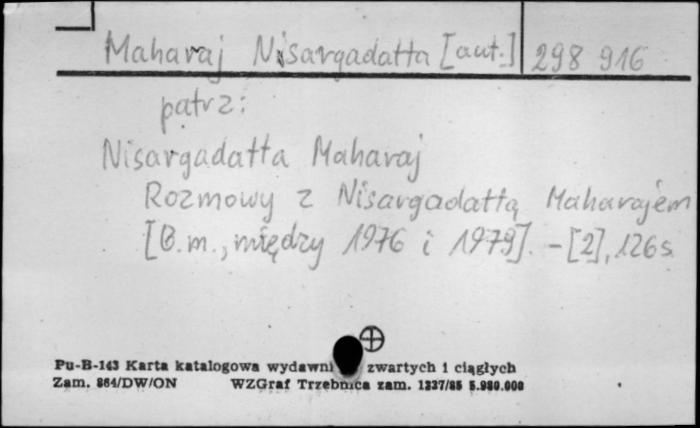 Maharaj Nisargadatta [aut.] 298 916
patrz:
Nisargadatta Maharaj
Rozmowy z Nisargadattą Maharajem
[B.m., między 1976 i 1979]. - [2], 126 s.
Pu-B-143 Karta katalogowa wydawni zwartych i ciągłych
Zam. 864/DW/ON WZGraf Trzebnica zam. 1337/85 5.980.000